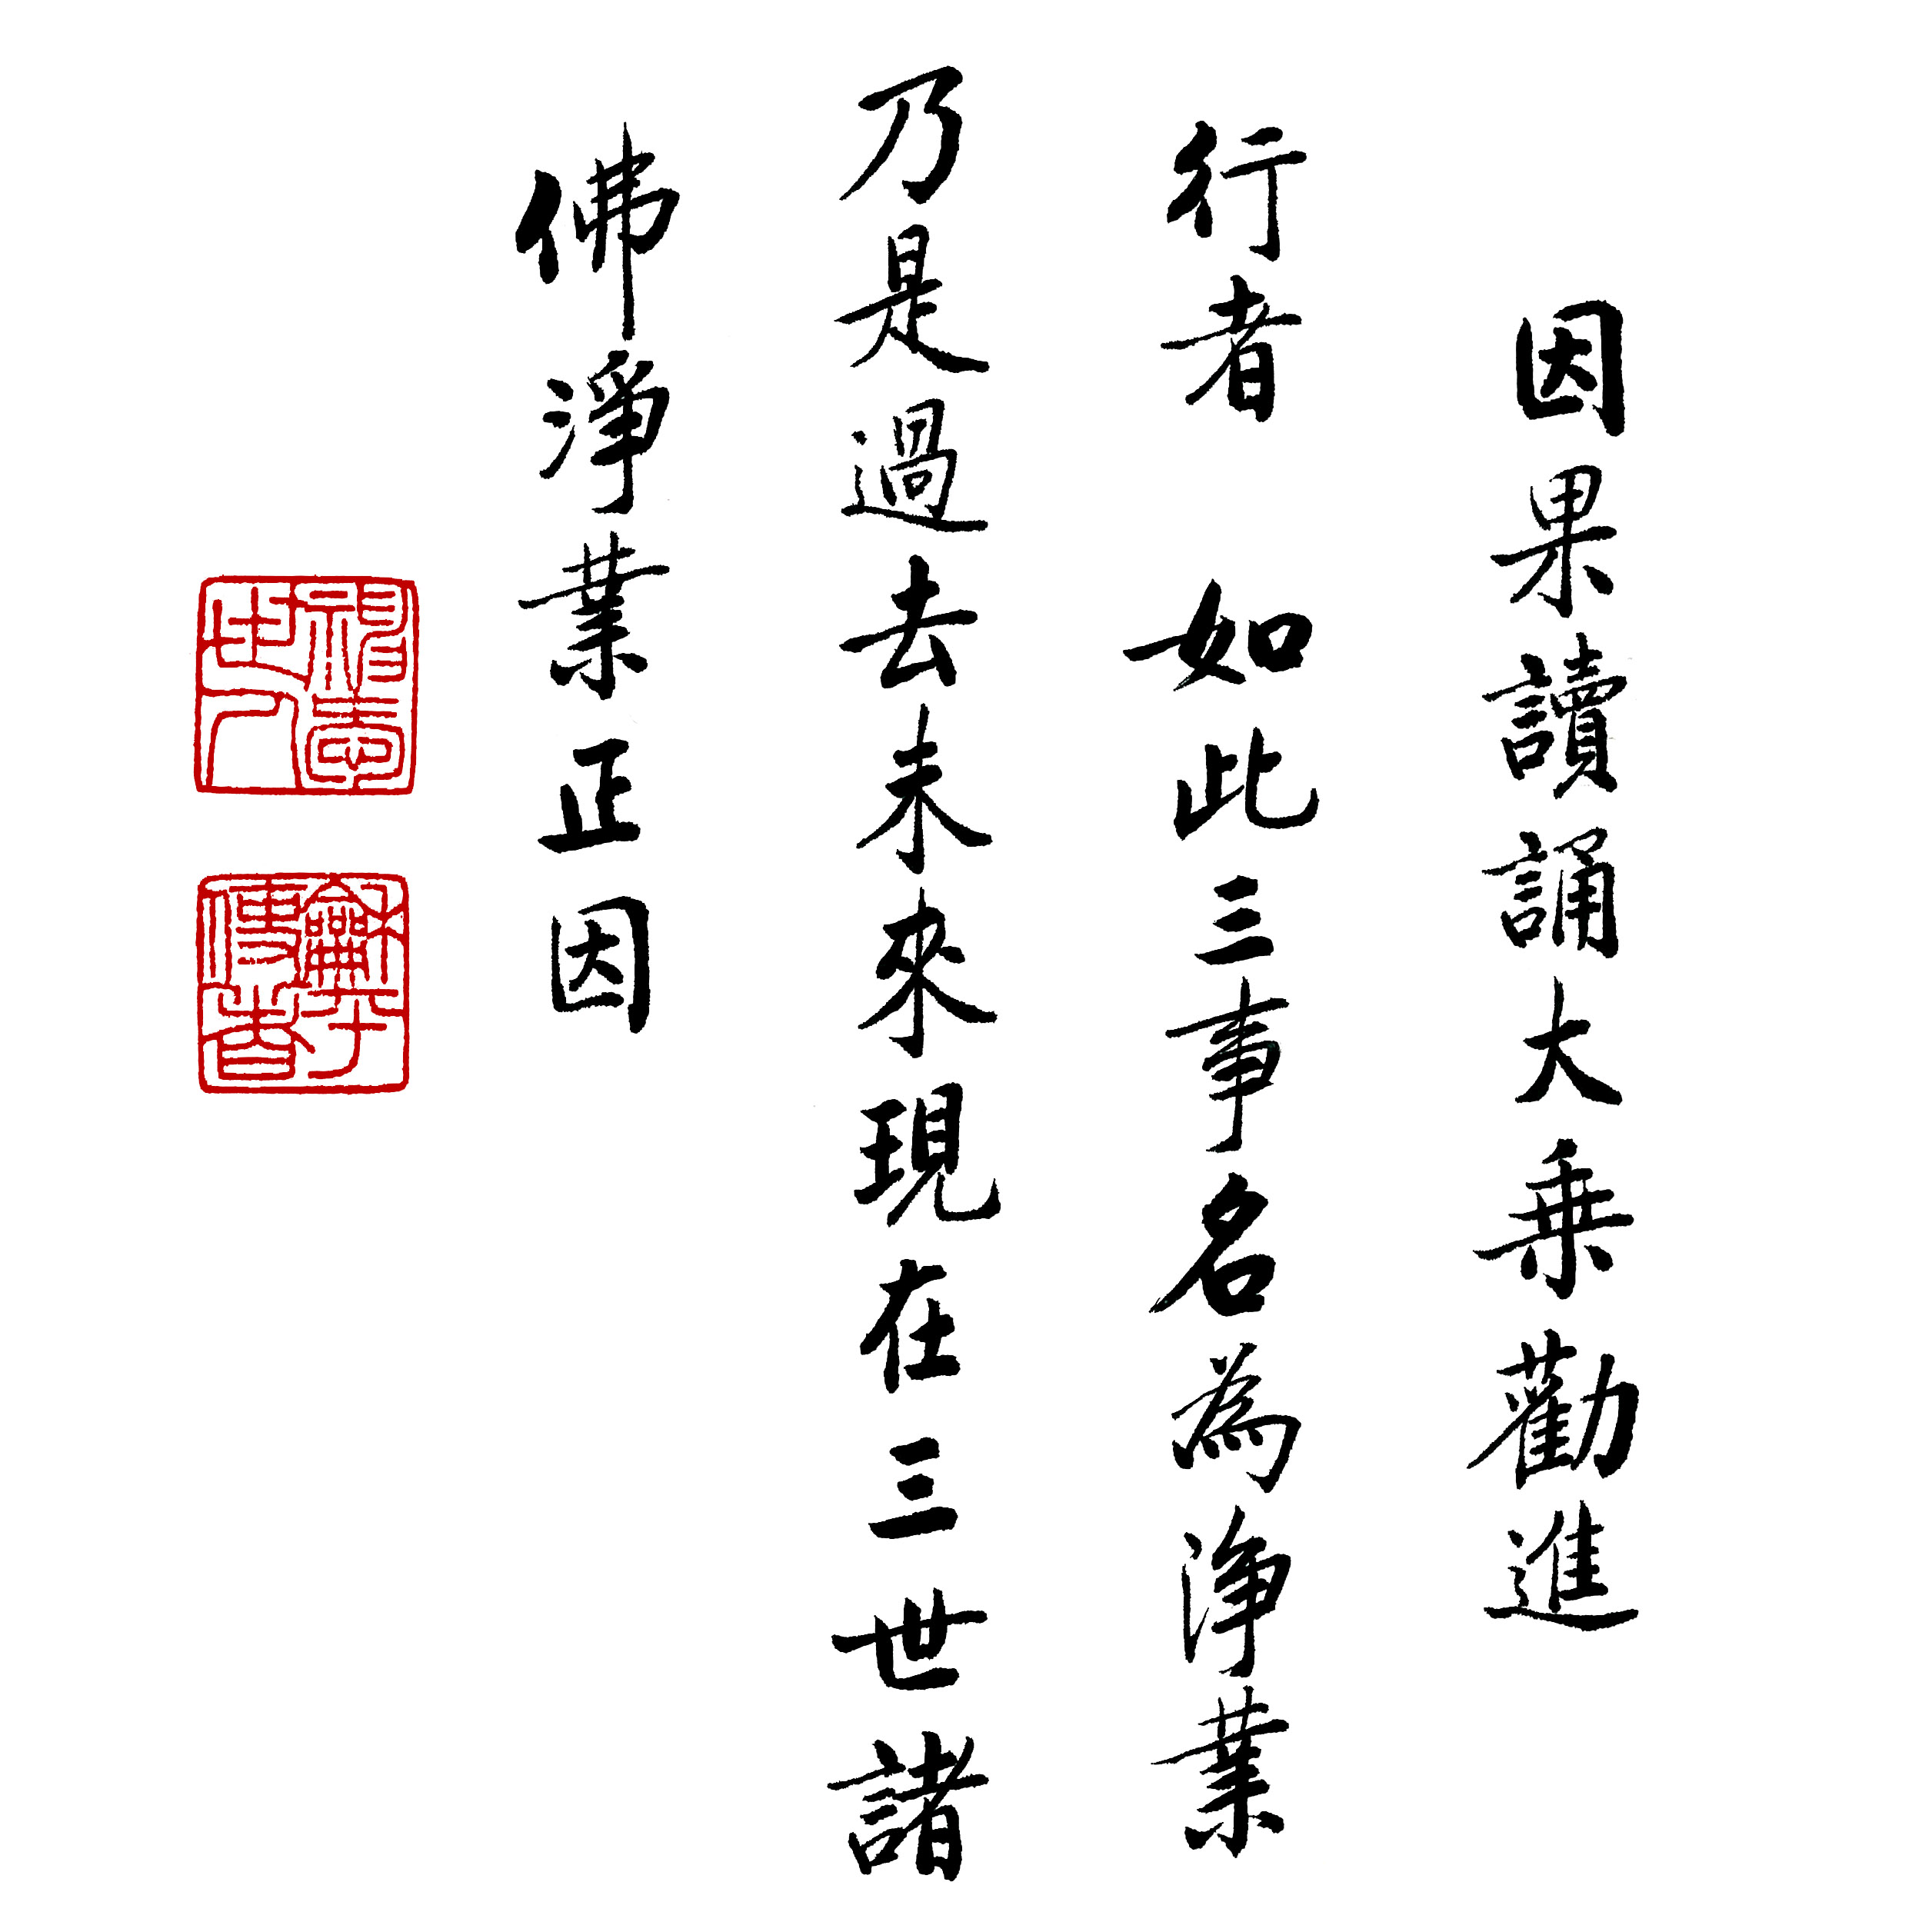 因果讀誦大乗勸進
行者 如此三事名為淨業
乃是過去未來現在三世諸
佛淨業正因